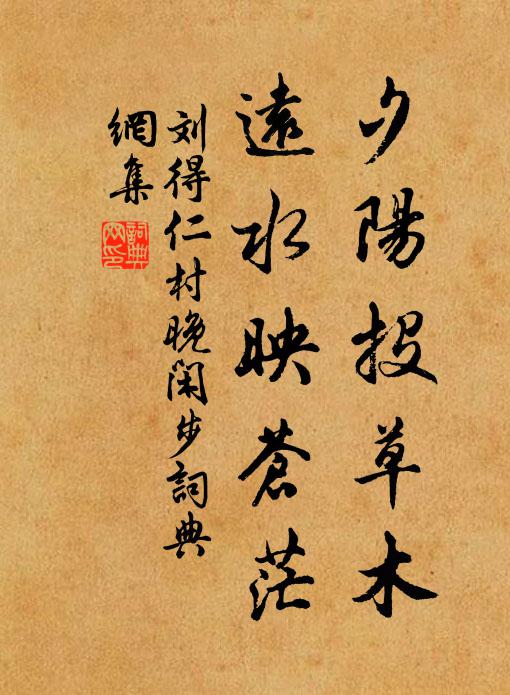 夕陽投草木
遠水映蒼茫
刘得仁村晚闲步詞典
網集
詞典
网印